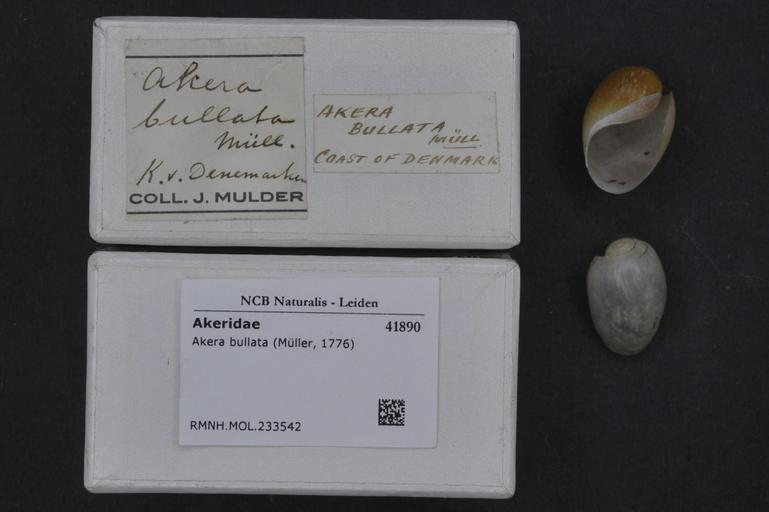 Akera
bullata
Müll.
K. v. Denemarken
COLL. J. MULDER
AKERA
BULLATA
MÜLL.
COAST OF DENMARK
NCB Naturalis - Leiden
Akeridae 41890
Akera bullata (Müller, 1776)
RMNH.MOL.233542